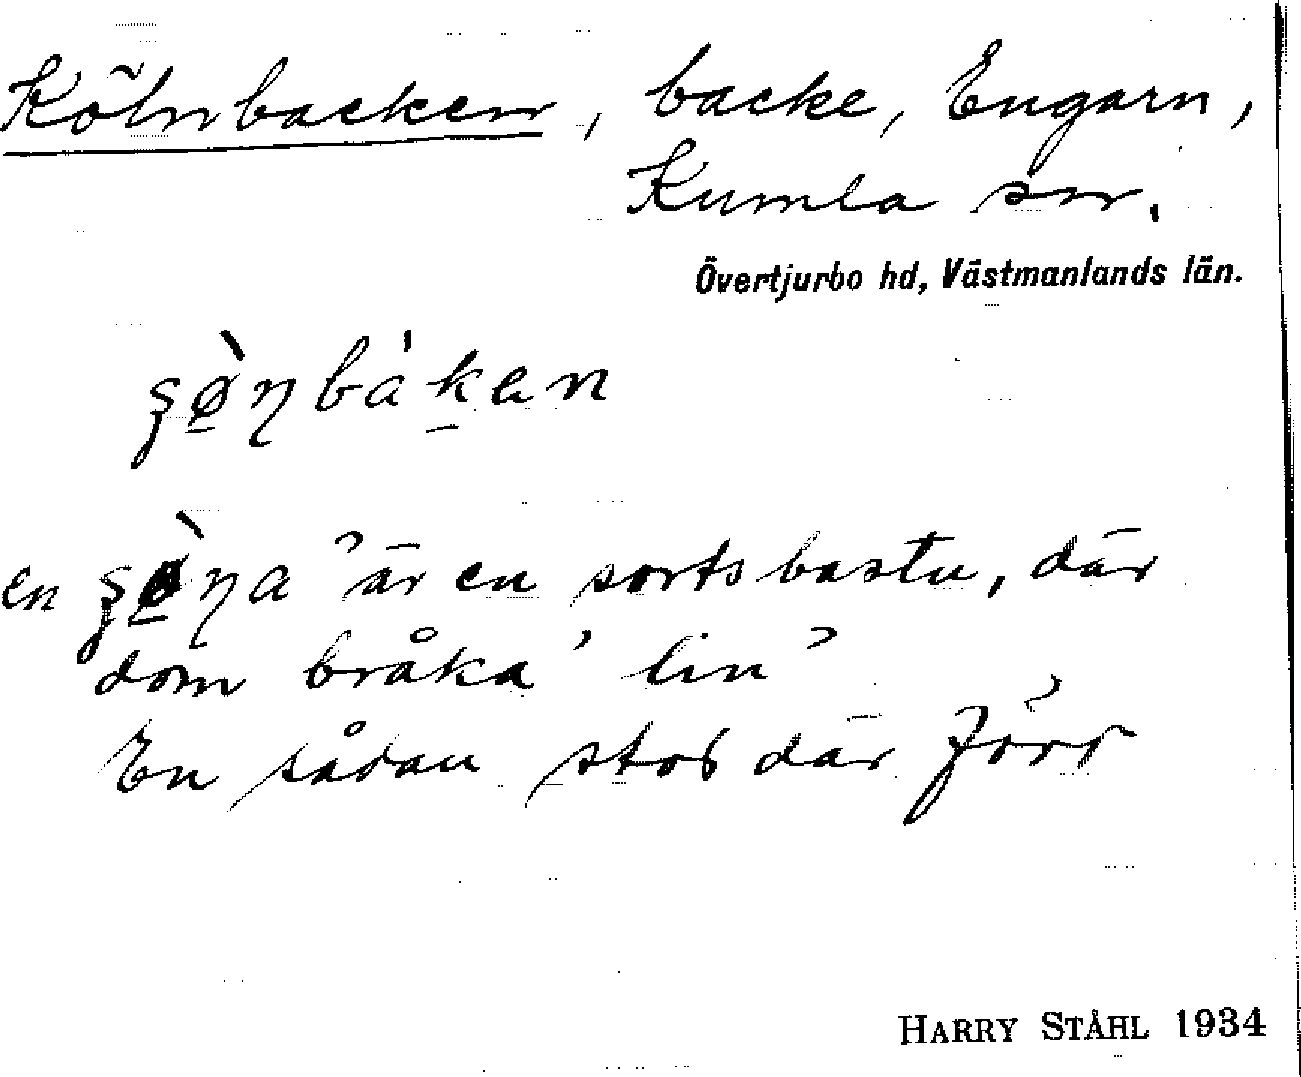 Kölnbacken, backe, Engarn,
Kumla sn.
Övertjurbo hd, Västmanlands län.
en är en sorts bastu, där
dom bråka' lin’
En sådan stod där förr
HARRY STÅHL 1934